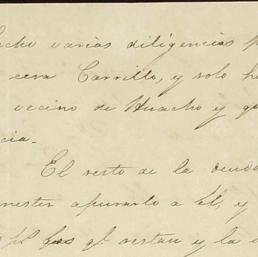 hecho varias diligencias p
cera Carrillo, y solo he
vecino de Huacho y qu
cia.
El resto de la deuda
menester apurarlo a El, y
pr. las qe. restan y la